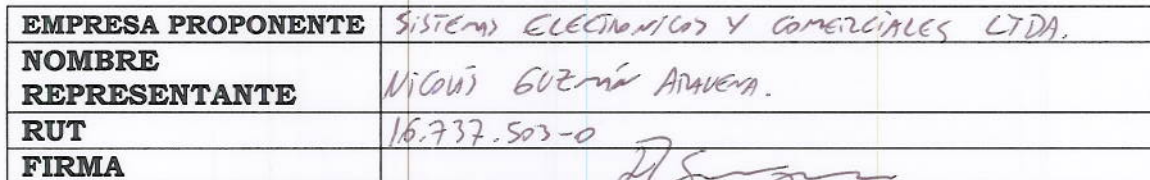 EMPRESA PROPONENTE SISTEMAS ELECTRONICOS Y COMERCIALES LTDA.
NOMBRE
REPRESENTANTE NICOLÁS GUZMÁN ARAVENA.
RUT 16.737.503-0
FIRMA